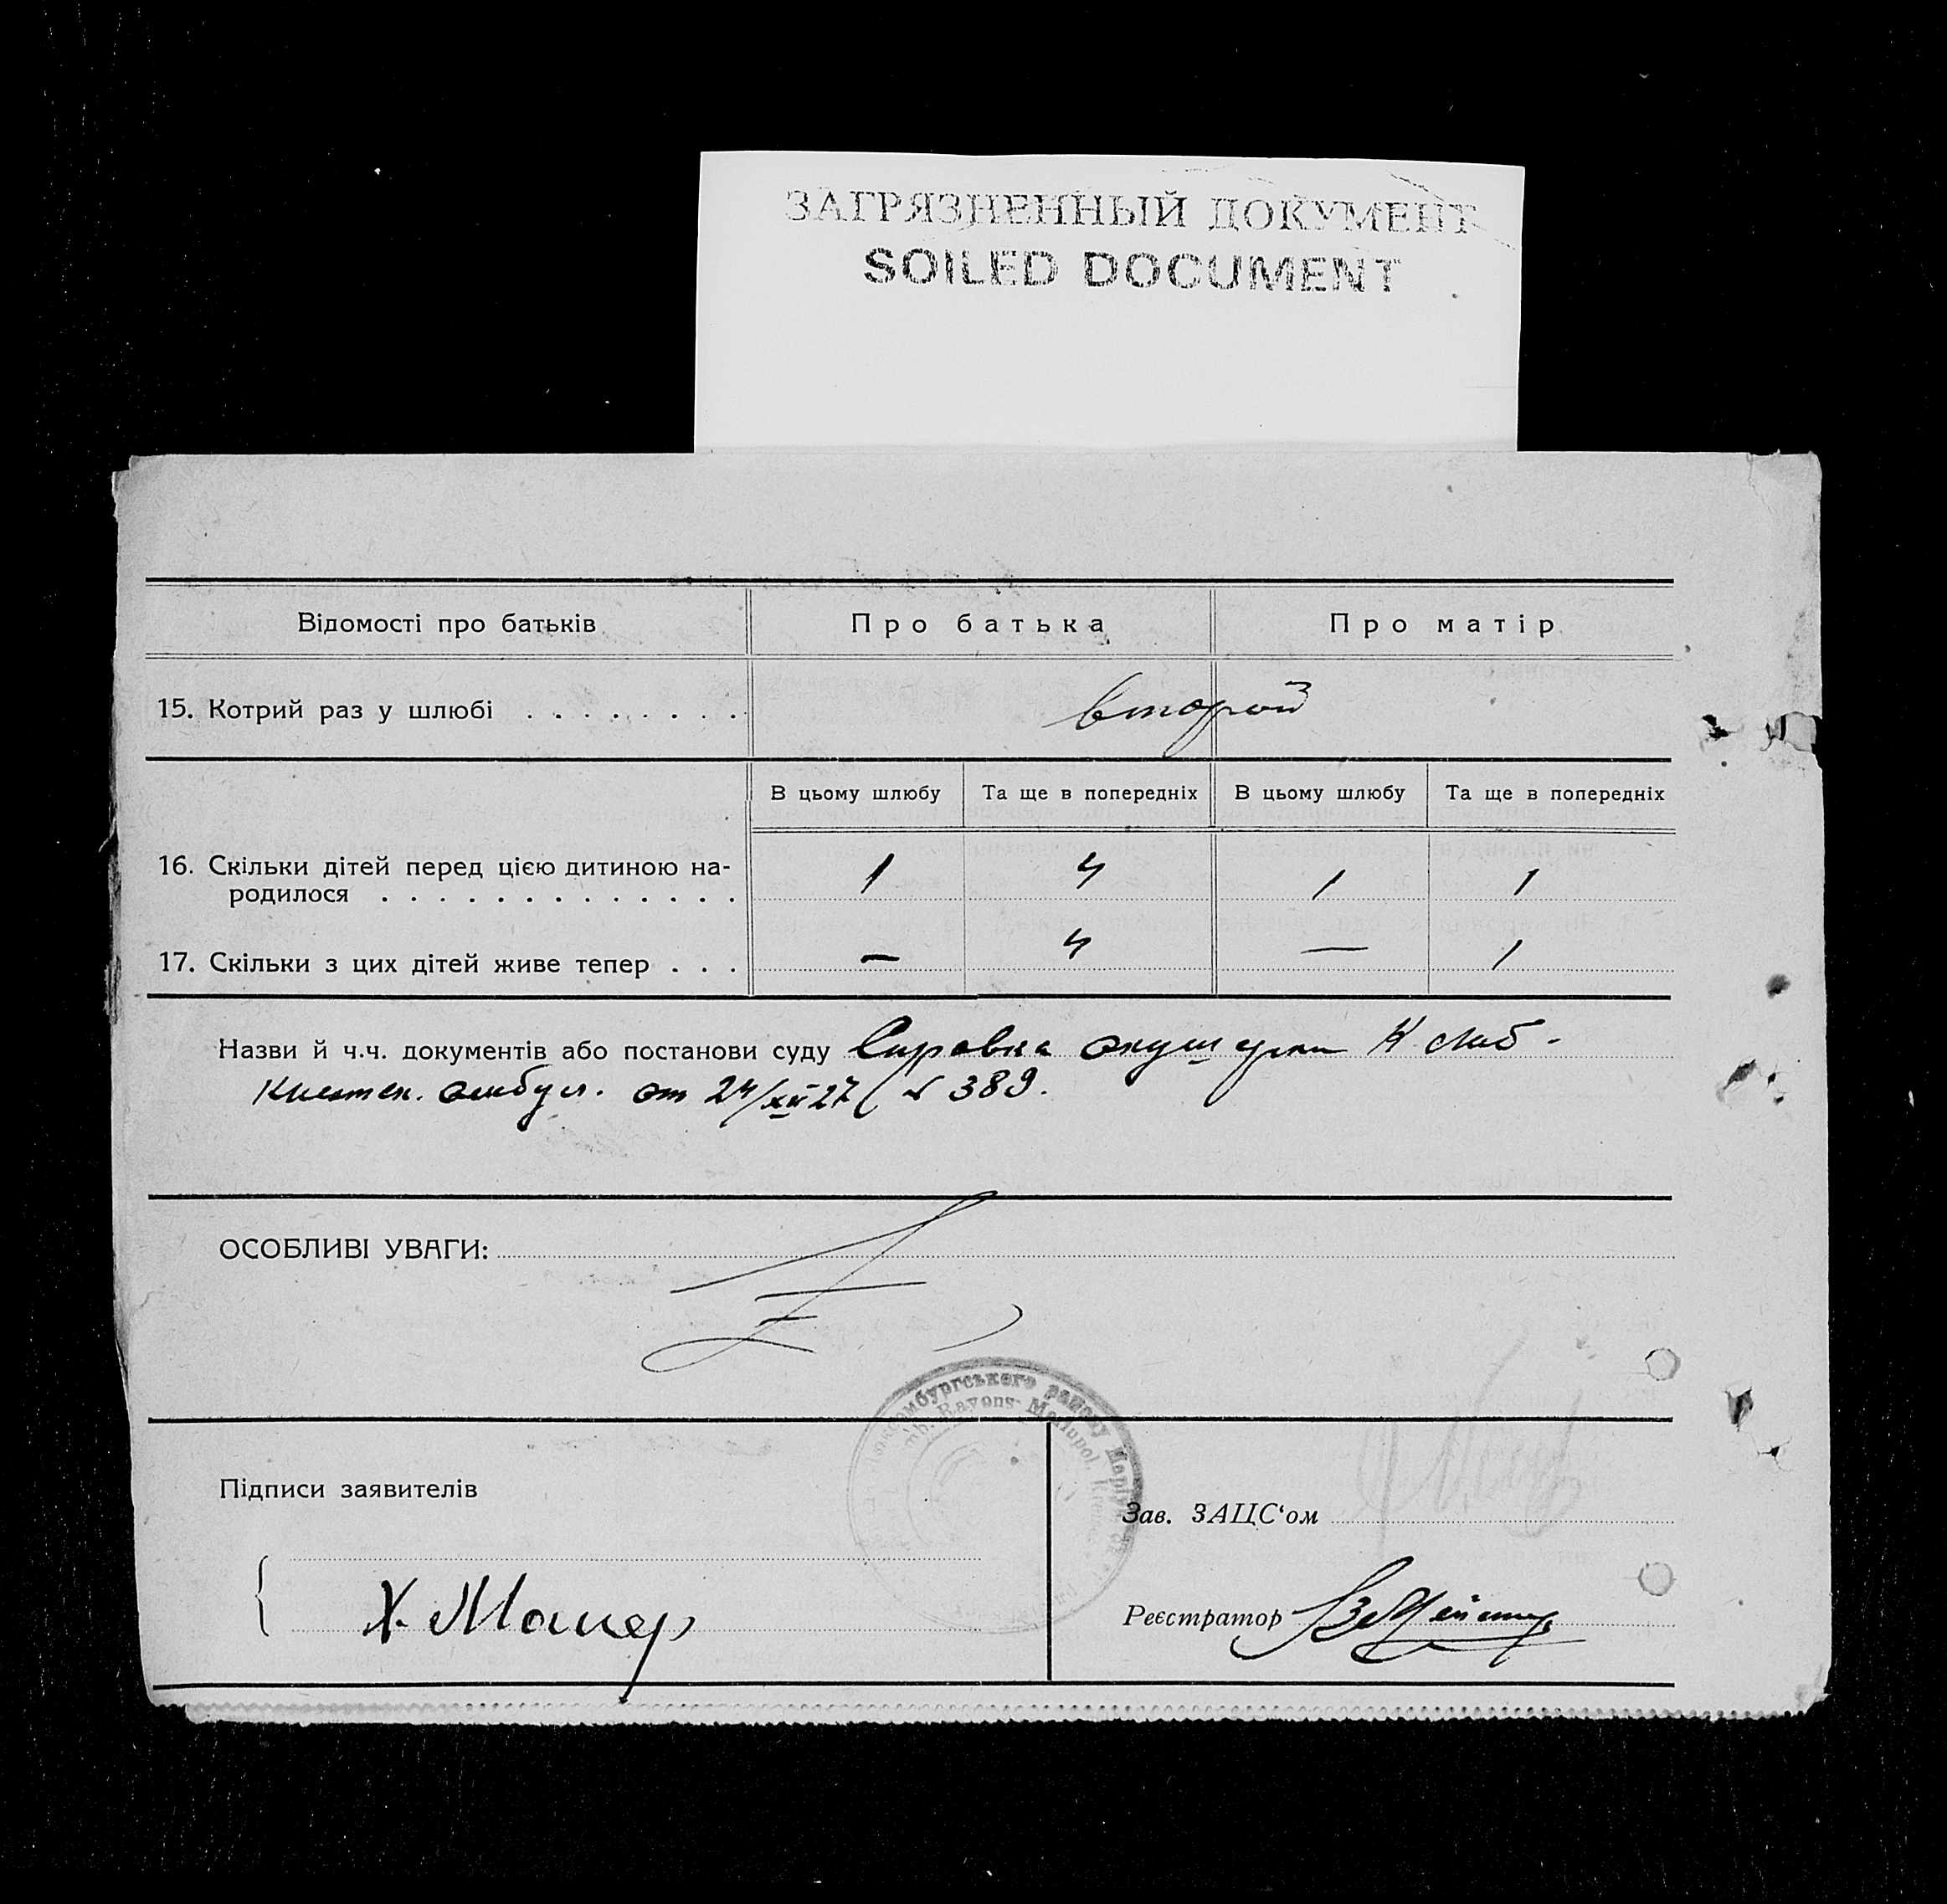 ЗАГРЯЗНЕННЫЙ ДОКУМЕНТ
SOILED DOCUMENT
Відомості про батьків Про батька Про матір
15. Котрий раз у шлюбі второй
В цьому шлюбу Та ще в попередніх В цьому шлюбу Та ще в попередніх
16. Скільки дітей перед цією дитиною на-
родилося 1 4 1 1
17. Скільки з цих дітей живе тепер — 4 — 1
Назви й ч.ч. документів або постанови суду Справка акушерки
амбул. от 24/XII 27 № 389.
ОСОБЛИВІ УВАГИ:
Люксембургського району Маріупольск
Rayons Mariupol. Kreises
Підписи заявителів
Зав. ЗАЦС‘ом
Х. Маиер
Реєстратор